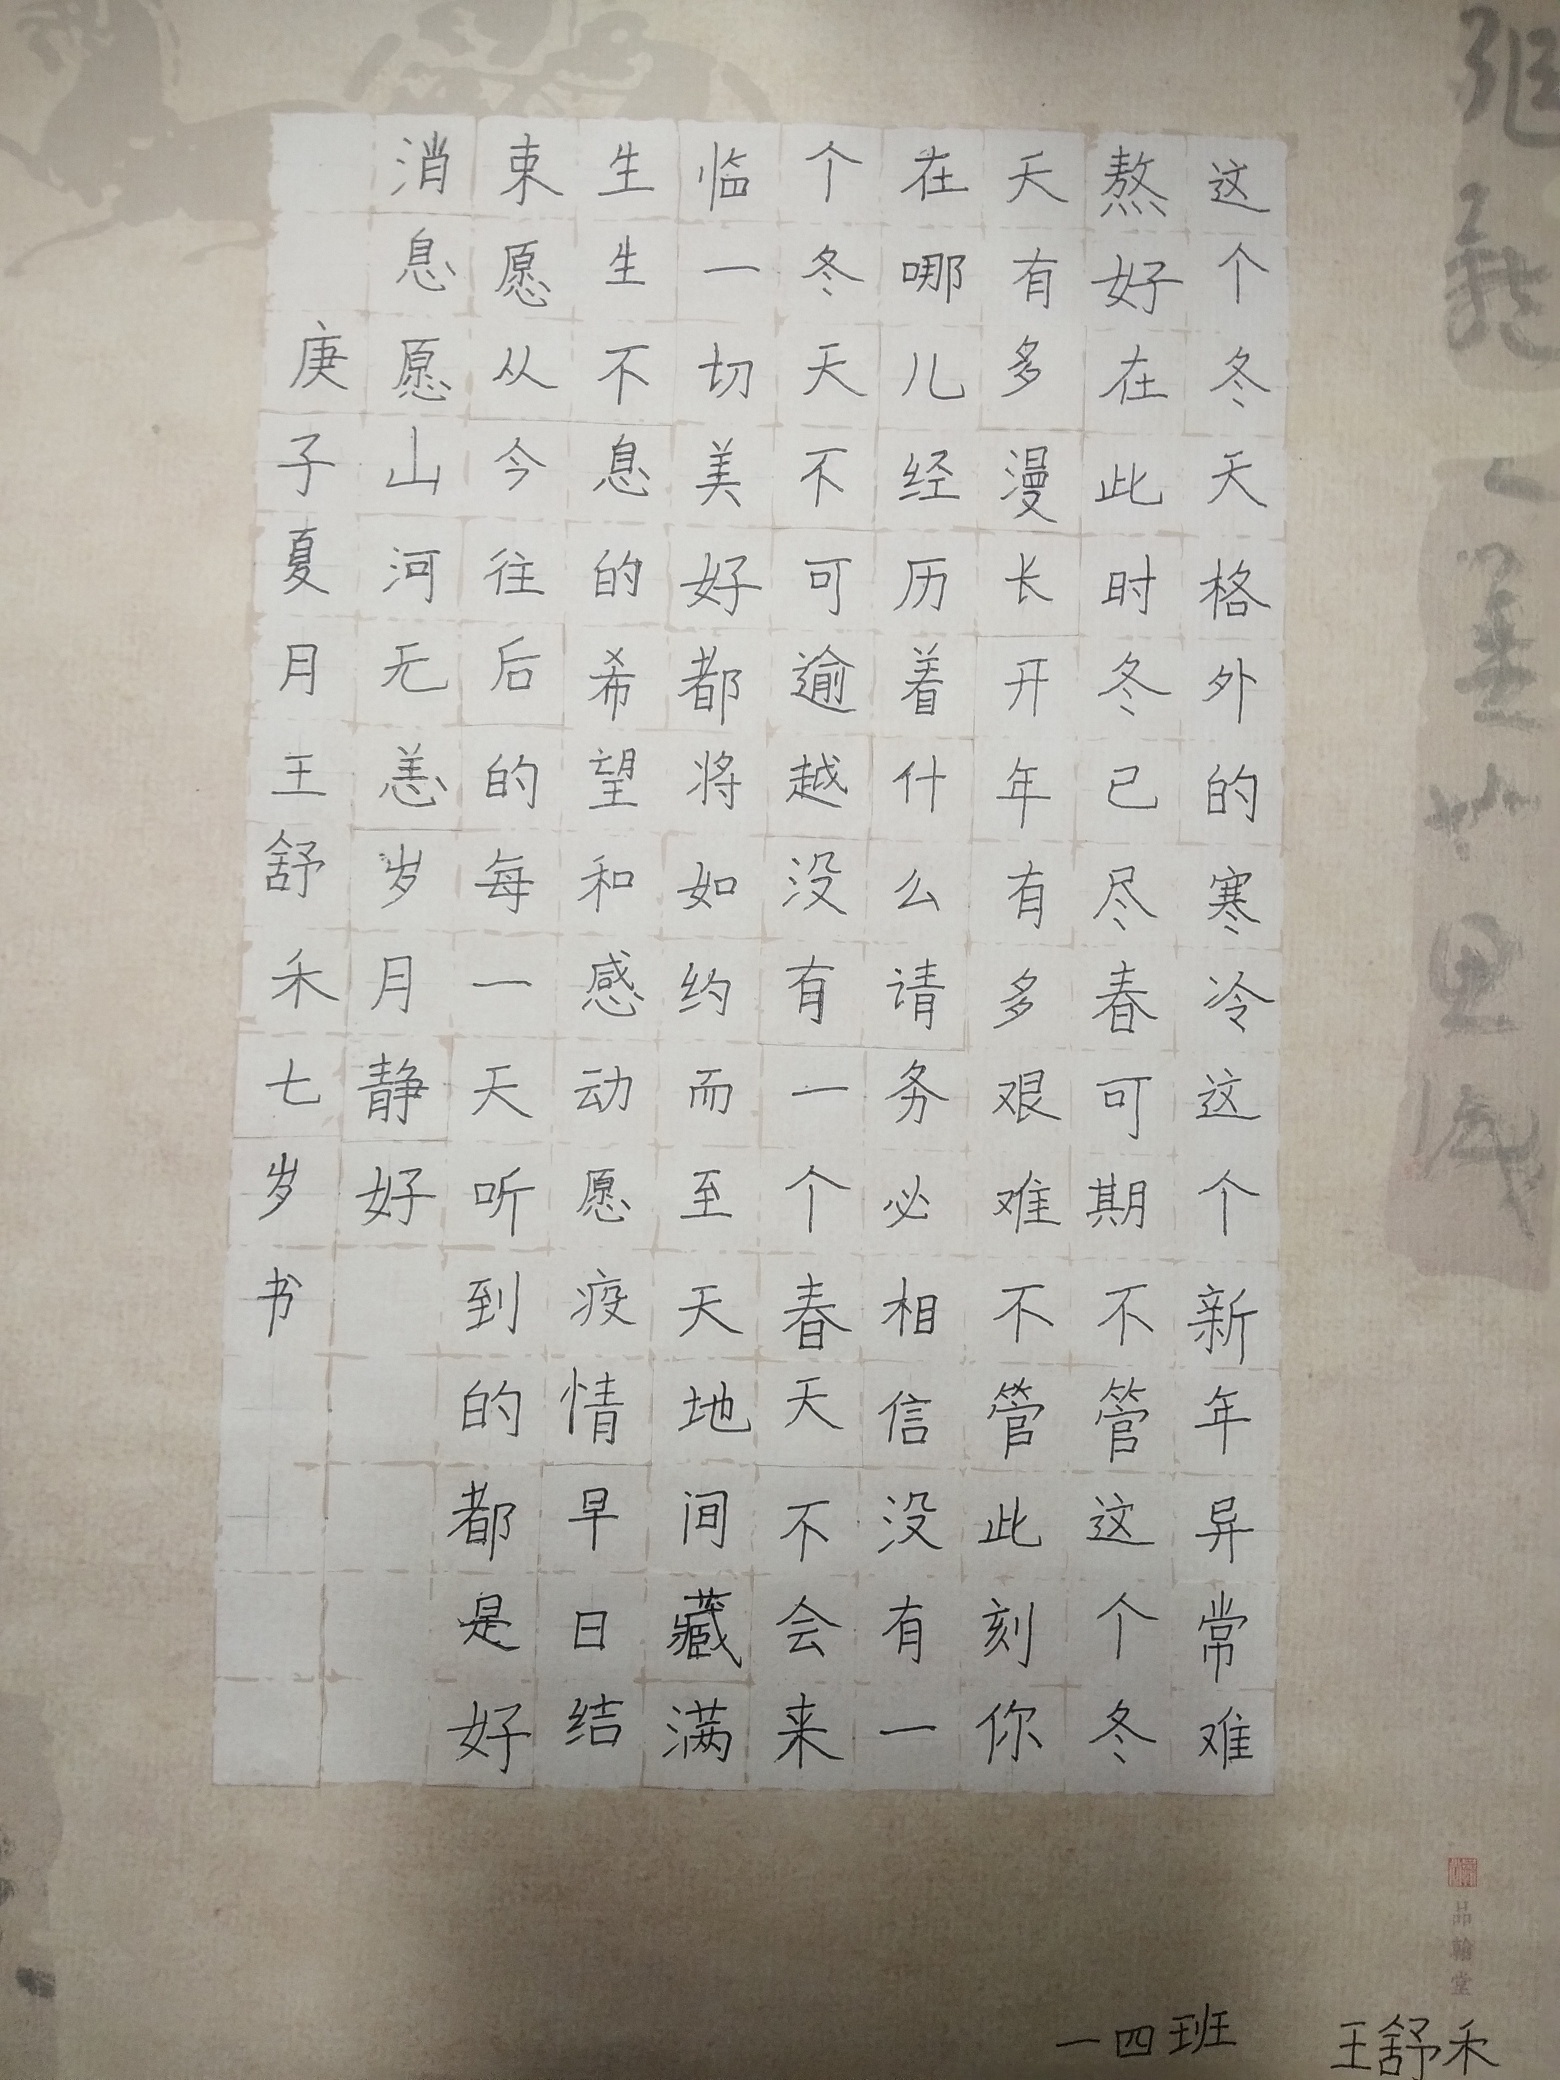 这个冬天格外的寒冷这个新年异常难
熬好在此时冬已尽春可期不管这个冬
天有多漫长开年有多艰难不管此刻你
在哪儿经历着什么请务必相信没有一
个冬天不可逾越没有一个春天不会来
临一切美好都将如约而至天地间藏满
生生不息的希望和感动愿疫情早日结
束愿从今往后的每一天听到的都是好
消息愿山河无恙岁月静好
庚子夏月王舒禾七岁书
品翰堂
一四班 王舒禾